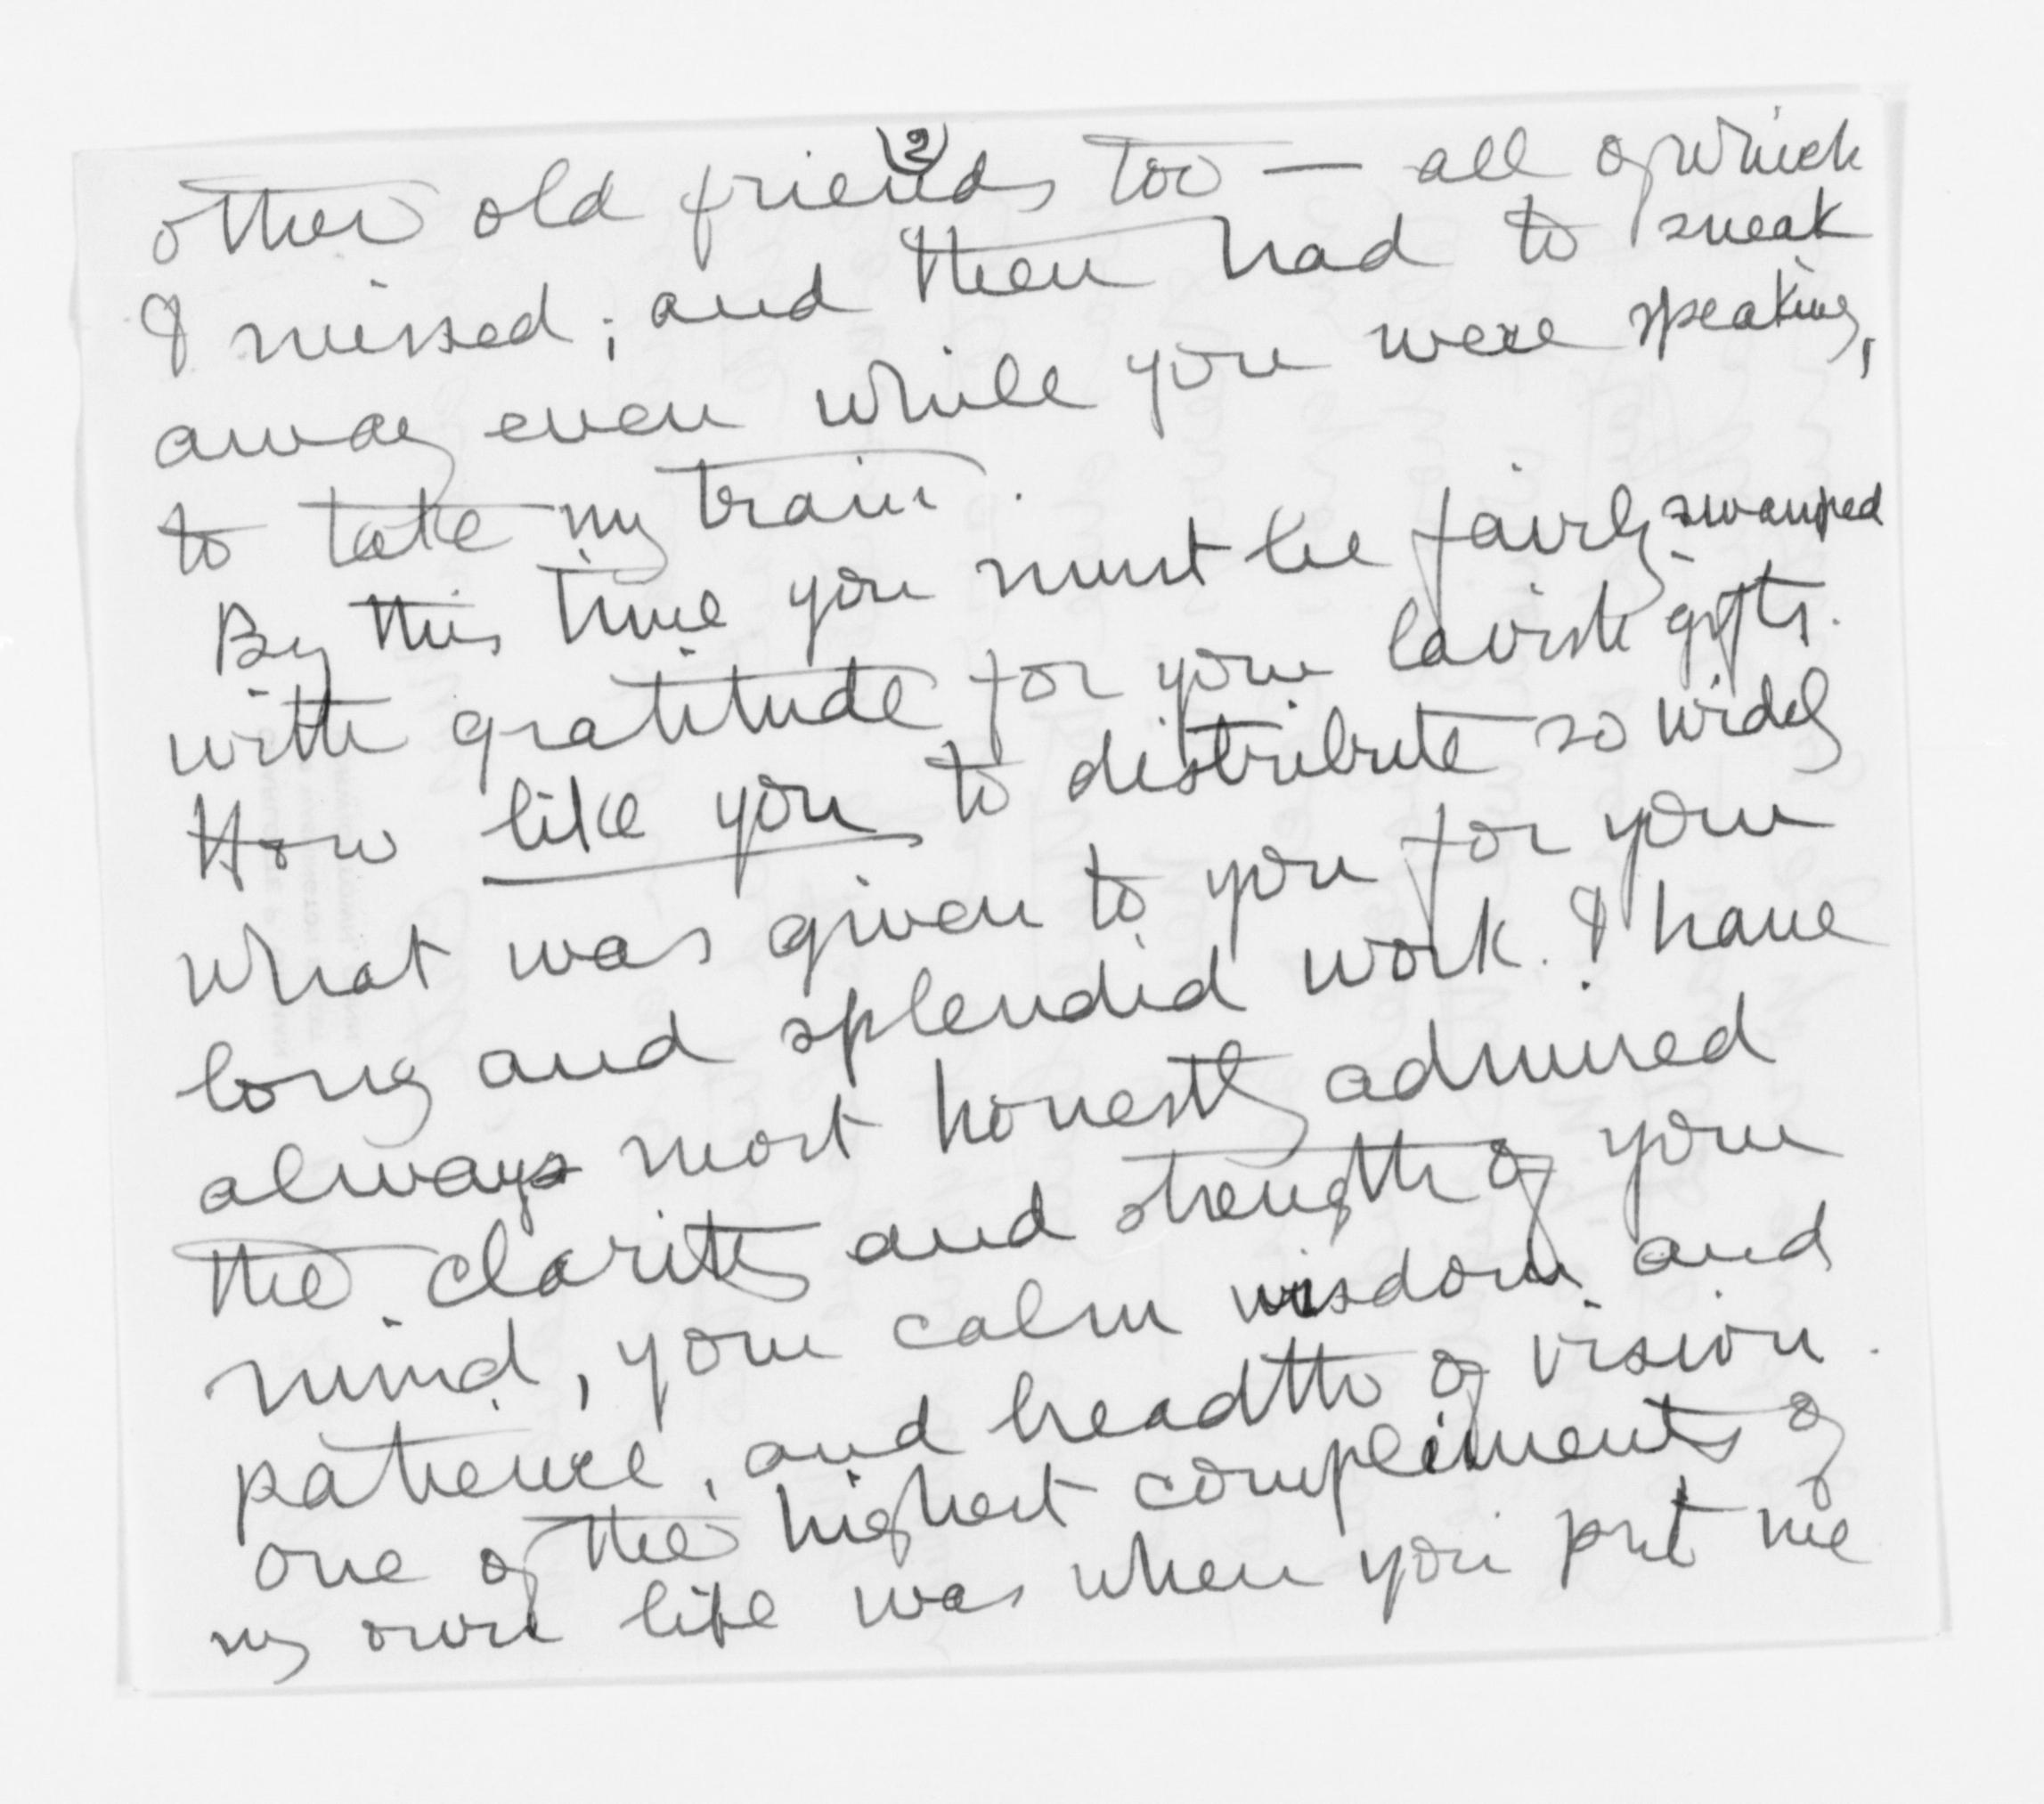 (2)
other old friends too — all of which
I missed; and then had to sneak
away even while you were speaking,
to take my train.
By this time you must be fairly swamped
with gratitude for your lavish gifts.
How like you to distribute so widely
what was given to you for your
long and splendid work. I have
always most honestly admired
the clarity and strength of your
mind, your calm wisdom and
patience, and breadth of vision.
One of the highest compliments of
my own life was when you put me